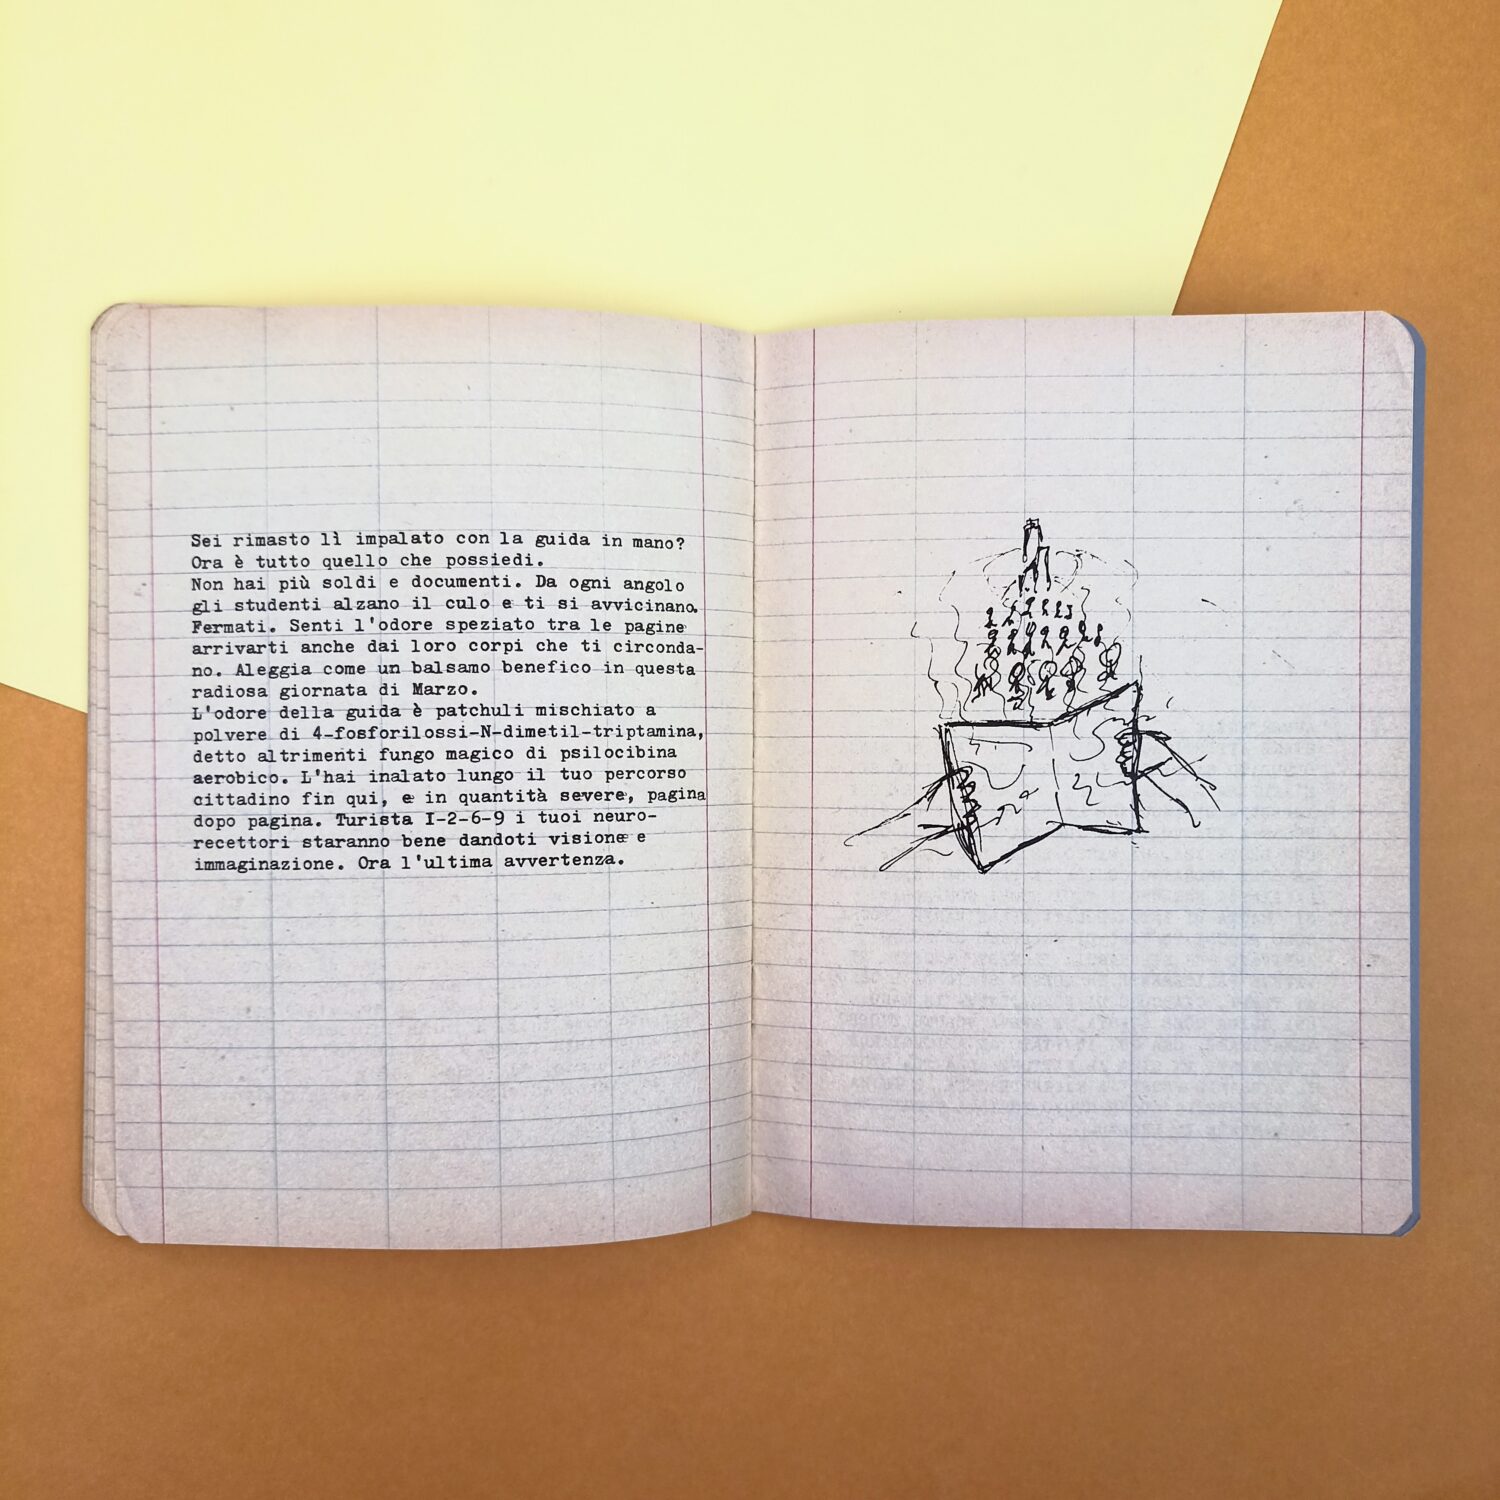 Sei rimasto lì impalato con la guida in mano?
Ora è tutto quello che possiedi.
Non hai più soldi e documenti. Da ogni angolo
gli studenti alzano il culo e ti si avvicinano.
Fermati. Senti l'odore speziato tra le pagine
arrivarti anche dai loro corpi che ti circonda-
no. Aleggia come un balsamo benefico in questa
radiosa giornata di Marzo.
L'odore della guida è patchuli mischiato a
polvere di 4-fosforilossi-N-dimetil-triptamina,
detto altrimenti fungo magico di psilocibina
aerobico. L'hai inalato lungo il tuo percorso
cittadino fin qui, e in quantità severe, pagina
dopo pagina. Turista I-2-6-9 i tuoi neuro-
recettori staranno bene dandoti visione e
immaginazione. Ora l'ultima avvertenza.